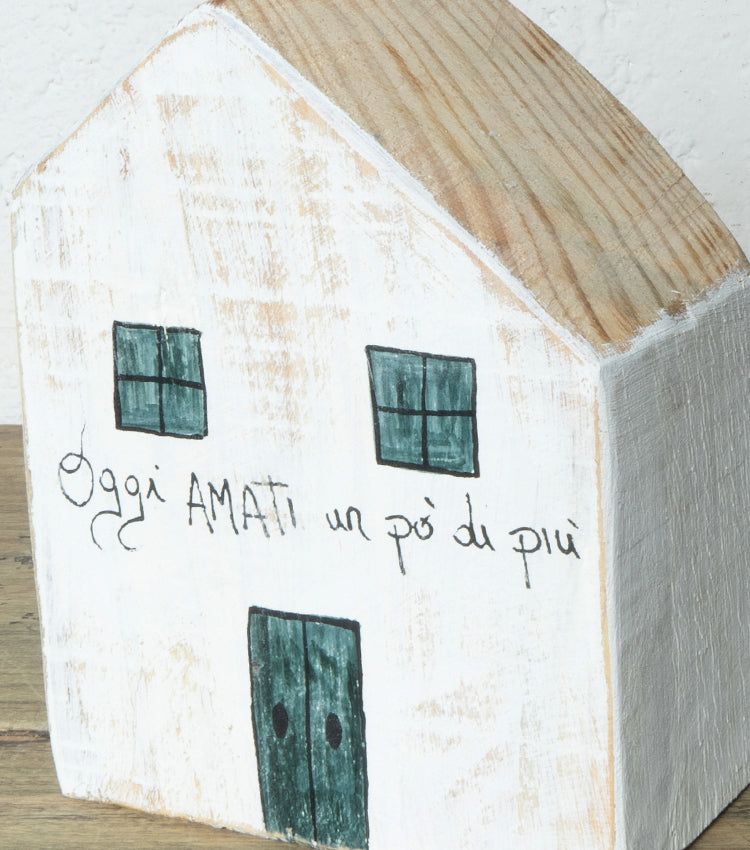 Oggi AMATI un pò di più